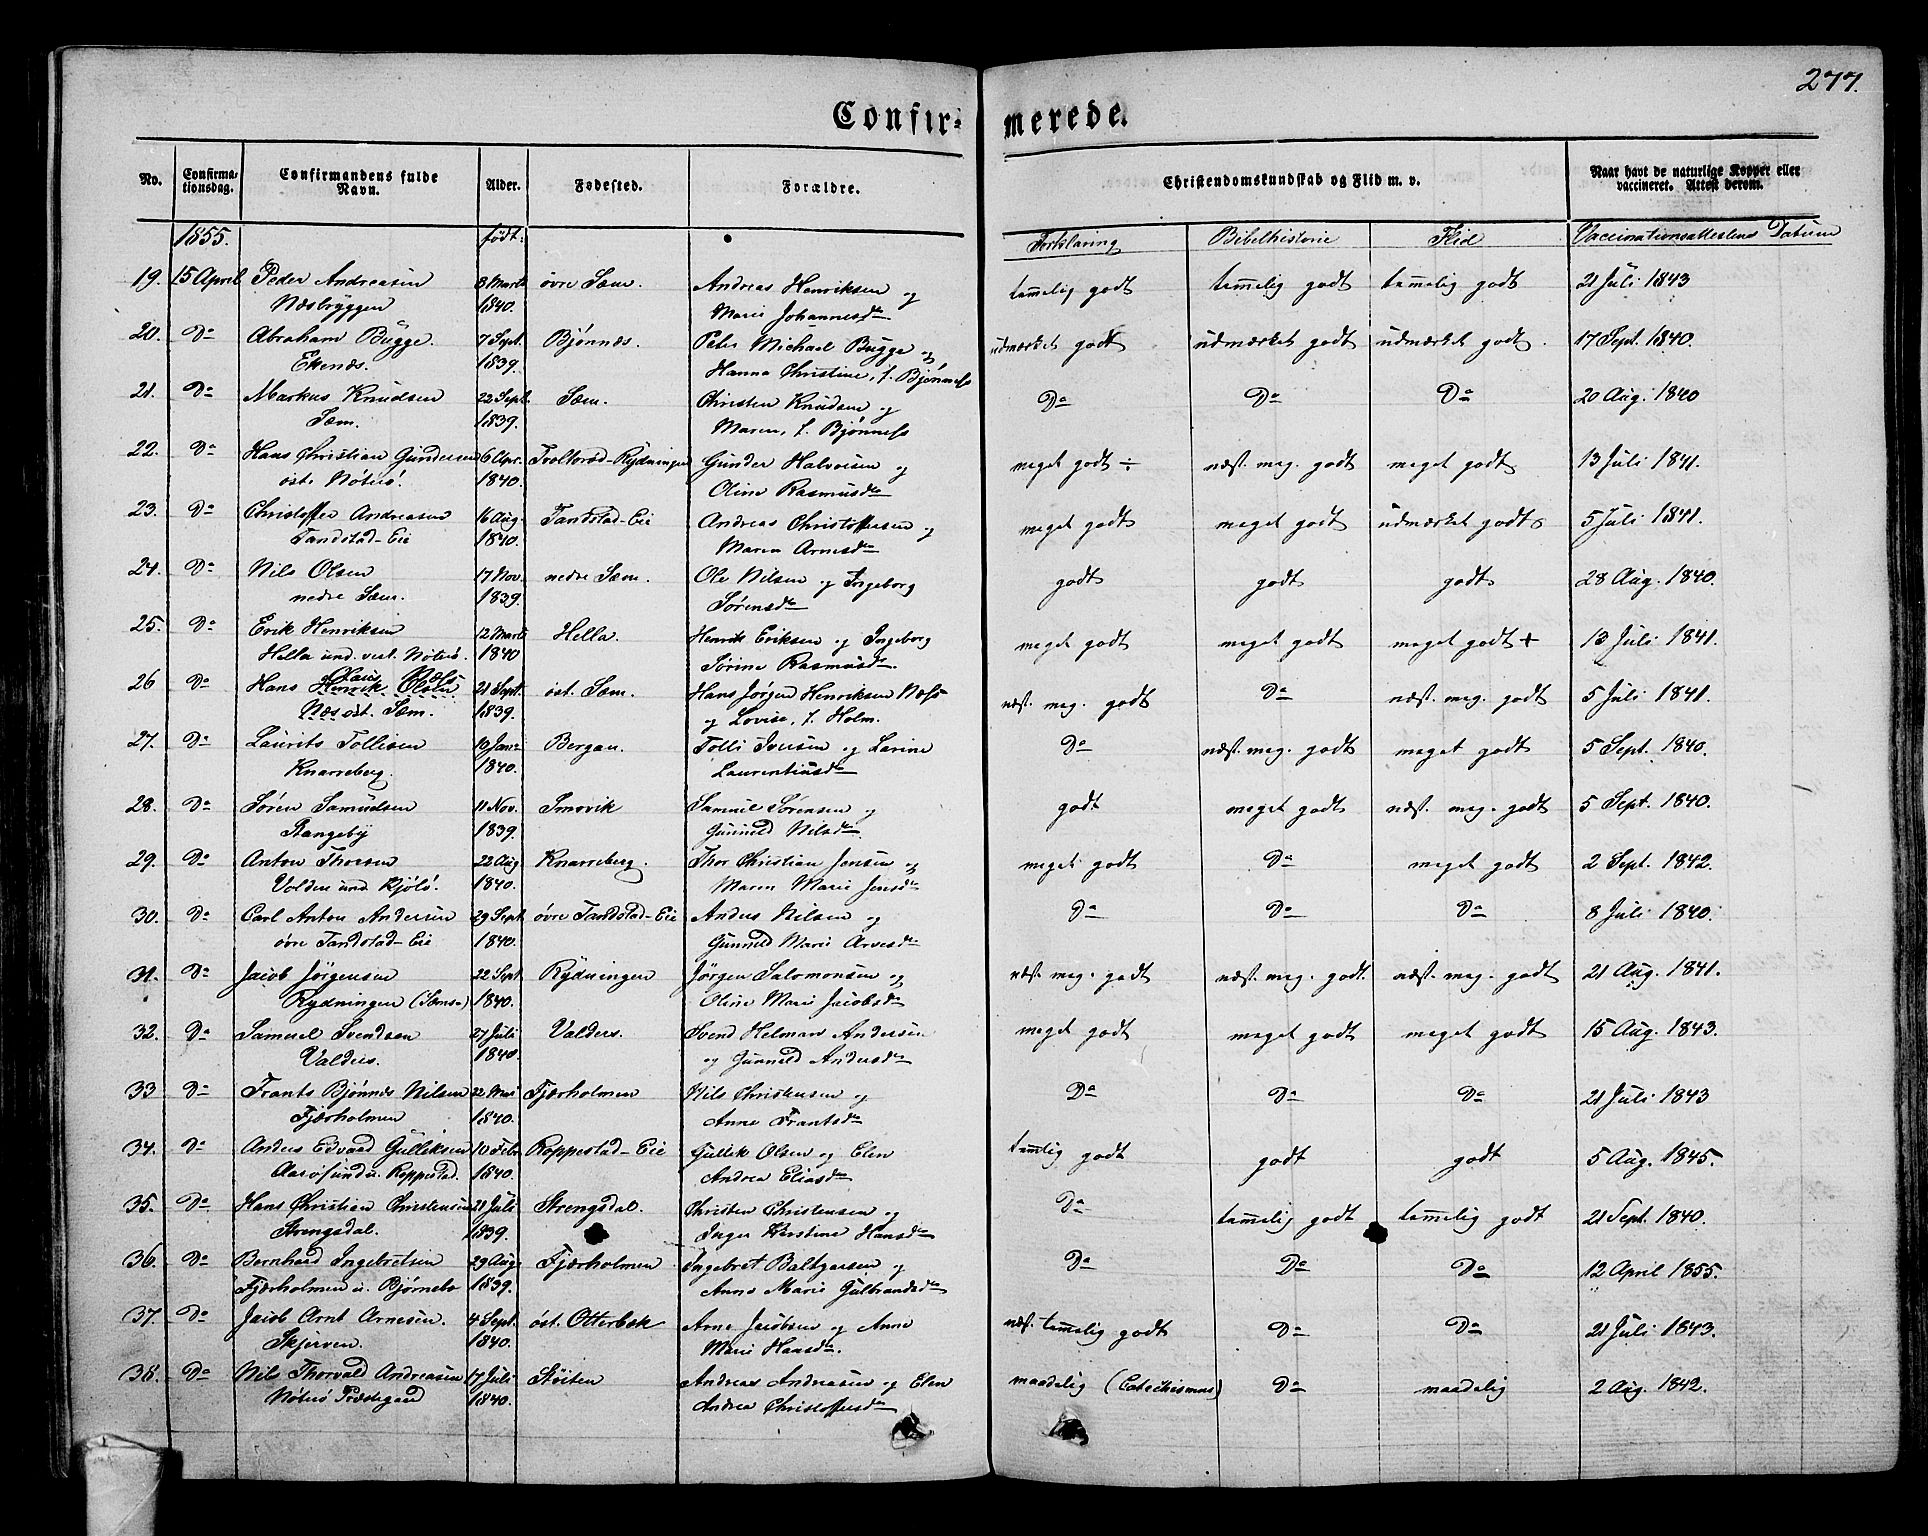 277.
Confirmerede.
No. Confirmationsdag. Confirmandens fulde Navn. Alder. Fødested. Forældre. Christendomskundskab og Flid m. v. Naar havt de naturlige Kopper eller vaccineret. Attest derom.
1855. født: Forklaring Bibelhistorie Flid Vaccinationsattestens Datum
19. 15 April Peder Andreasen 8 Marts øvre Sæm. Andreas Henriksen og tam̄elig godt tam̄elig godt tam̄elig godt 21 Juli 1843
Næsbryggen 1840. Marie Johannesdr
20. Do Abraham Bugge. 7 Sept. Bjønnæs. Peter Michael Bugge og udmærket godt udmærket godt udmærket godt. 17 Sept. 1840.
Ekenæs. 1839. Hanna Christine, f. Bjønness
21. Do Markus Knudsen 22 Sept. Sæm. Christen Knudsen og Do Do Do 20 Aug. 1840
Sæm. 1839. Maren, f. Bjønness
22. Do Hans Christian Gundersen 6 Apr. Tvolterød-Rydningen Gunder Halvorsen og meget godt ÷ næst. meg. godt meget godt 13 Juli 1841.
øst. Nøterø. 1840. Oline Rasmusdr
23. Do Christoffer Andreasen 16 Aug. Tandstad-Eie Andreas Christoffersen og meget godt meget godt udmærket godt 5 Juli 1841.
Tandstad-Eie 1840. Maren Arnesdr
24. Do Nils Olsen 17 Nov. nedre Sæm. Ole Nilsen og Ingeborg godt godt godt 28 Aug. 1840.
nedre Sæm. 1839. Sørensdr
25. Do Erik Henriksen 12 Marts Hella. Henrik Eriksen og Ingeborg meget godt meget godt meget godt + 13 Juli 1841.
Hella und. vest. Nøterø. 1840 Sørine Rasmusdr
26 Do Hans Henrik Olsen 21 Sept. øst. Sæm. Hans Jørgen Henriksen Næss næst. meg. godt Do næst. meg. godt 5 Juli 1841.
Næs øst. Sæm. 1839. og Lovise, f. Holm.
27. Do Laurits Tollisen 19 Janr Bergan. Tolli Iversen og Larine Do næst. meg. godt meget godt 5 Sept. 1840.
Knarreberg. 1840. Laurentiusdr
28. Do Søren Samuelsen 11 Nov. Smovik Samuel Sørensen og godt meget godt næst. meg. godt 5 Sept. 1840.
Rangeby 1839. Gunnild Nilsdr
29. Do Anton Thorsen 22 Aug Knarreberg. Thor Christian Jensen og meget godt Do meget godt 2 Sept. 1842.
Volden und Kjølø. 1840. Maren Marie Jensdr
30. Do Carl Anton Andersen 29 Sept. øvre Tandstad-Eie Anders Nilsen og Do Do Do 8 Juli 1840.
øvre Tandstad-Eie 1840. Gunnild Marie Arnesdr
31. Do Jacob Jørgensen 22 Sept Rydningen Jørgen Salomonsen og næst. meg. godt næst. meg. godt. næst. meg. godt 21 Aug. 1841.
Rydningen 1840. Oline Marie Jacobsdr
32. Do Samuel Svendsen 27 Juli Valders. Svend Helman Andersen meget godt meget godt meget godt 15 Aug. 1843.
Valders. 1840. og Gunnild Andersdr
33 Do Frants Bjønnæs Nilsen 22 Mai Fjærholmen Nils Christensen og Do Do Do 21 Juli 1843
Fjærholmen 1840. Anne Frantsdr
34. Do Anders Edvard Gulliksen 10 Febr Roppestad-Eie Gullik Olsen og Elen tam̄elig godt godt godt 5 Aug. 1845.
Aarøsund u. Roppestad. 1840. Andrea Eliasdr
35. Do Hans Christian Christensen 21 Juli Strengsdal. Christen Christensen og Do tam̄elig godt tam̄elig godt 21 Sept. 1840.
Strengsdal. 1839. Inger Kirstine Hansdr
36. Do Bernhard Ingebretsen 29 Aug. Fjærholmen Ingebret Baltzersen og Do Do Do 12 April 1855.
Fjærholmen u. Bjørnebo 1839. Anne Marie Gulbrandsdr
37. Do Jacob Arnt Arnesen. 4 Sept. øst. Otterbæk Arne Jacobsen og Anne næst. tam̄elig godt Do Do 21 Juli 1843.
Skjerven. 1840. Marie Hansdr
38. Do Nils Thorvald Andreasen 17 Juli Støiten Andreas Andreasen og Elen maadelig (Catechismus) Do maadelig 2 Aug. 1842.
Nøterø Præstegaard 1840. Andrea Christoffersdr